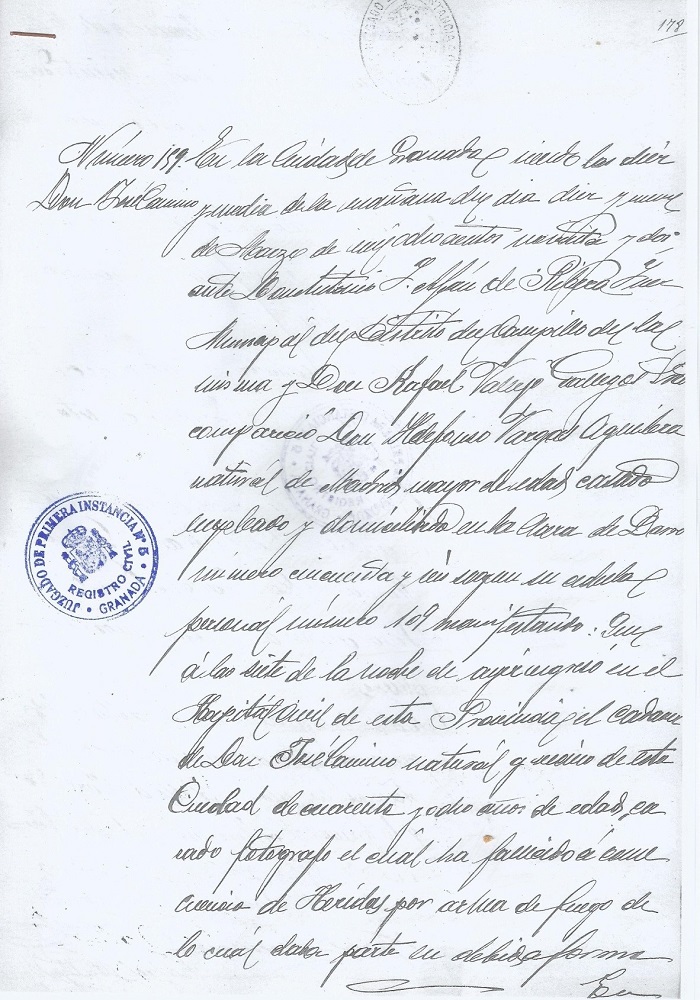 178
Número 159. En la Ciudad de Granada siendo las diez
Don José Camino y media de la mañana del dia diez y nueve
de Marzo de mil ochocientos noventa y dos
ante Constitutino P. Afán de Ribera Juez
Municipal del Distrito del Campillo de la
misma y Don Rafael Vallejo Gallegos
compareció Don Ildefonso Vargas Aguilera
natural de Madrid mayor de edad casado
empleado y domiciliado en la Carra de Darro
número cincuenta y seis segun su cédula
personal número 109 manifestando: Que
á las siete de la noche de ayer ingresó en el
Hospital Civil de esta Provincia el cadaver
de Don José Camino natural y vecino de esta
Ciudad de cuarenta y ocho años de edad, ca
sado fotografo el cuál ha fallecido á conse
cuencia de Heridas por arma de fuego de
lo cuál daba parte en debida forma
En
JUZGADO DE PRIMERA INSTANCIA Nº 5
REGISTRO CIVIL
GRANADA